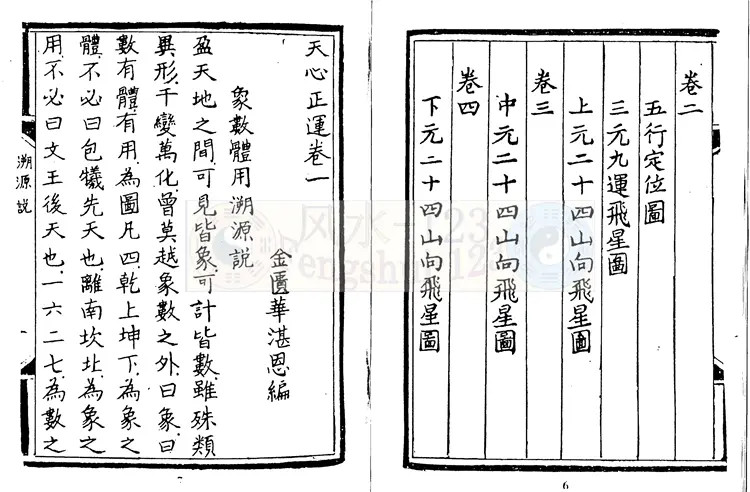 卷二
五行定位圖
三元九運飛星圖
上元二十四山向飛星圖
卷三
中元二十四山向飛星圖
卷四
下元二十四山向飛星圖
6
天心正運卷一
象數體用溯源說
金匱華湛恩編
盈天地之間、可見皆象、可計皆數、雖殊類
異形、千變萬化、曾莫越象數之外、曰象、曰
數、有體、有用、為圖凡四、乾上坤下、為象之
體、不必曰包犧先天也、離南坎北、為象之
用、不必曰文王後天也、一六二七、為數之
溯源說
7
风水-123
engshui-123